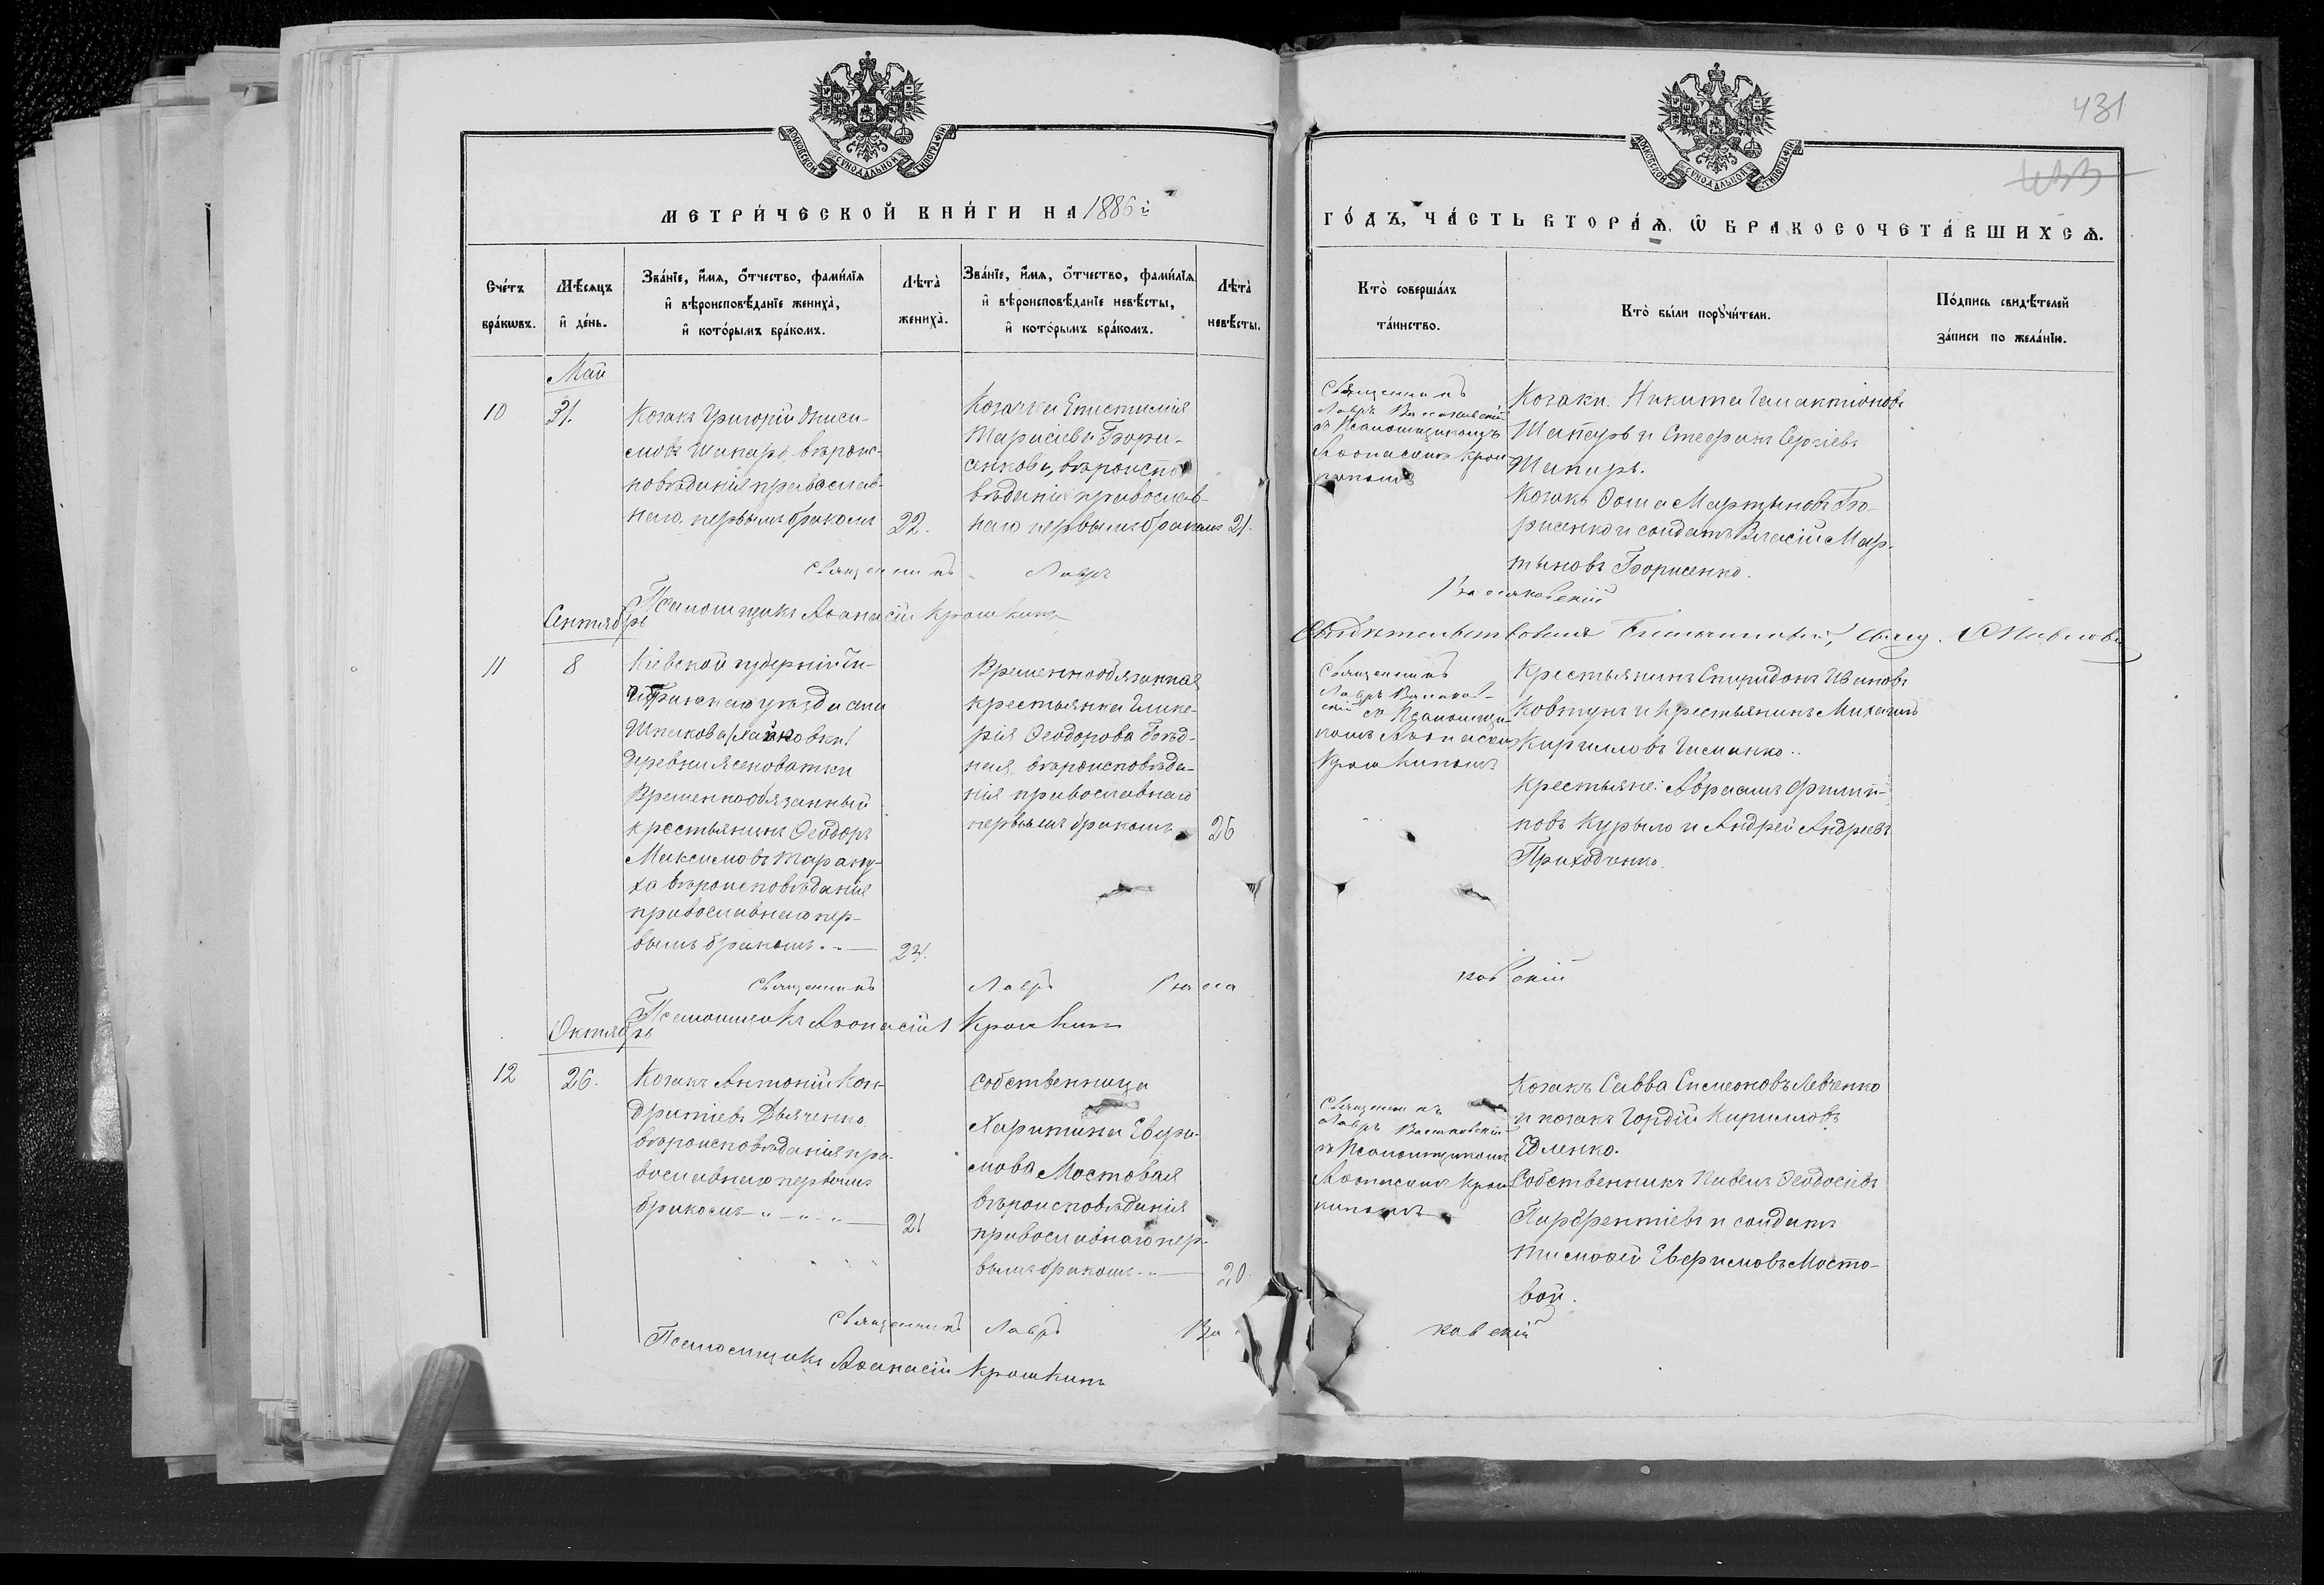 431
МЕТРИЧЕСКОЙ КНИГИ НА 1886й
ГОДЪ, ЧАСТЬ ВТОРАЯ, Ѡ БРАКОСОЧЕТАВШИХСЯ.
МОСКОВСКОЙ СѴНОДАЛЬНОЙ ТИПОГРАФІИ
МОСКОВСКОЙ СѴНОДАЛЬНОЙ ТИПОГРАФІИ
Счетъ
браковъ.
Мѣсяцъ
и день.
Званіе, имя, отчество, фамилія
и вѣроисповѣданіе жениха,
и которымъ бракомъ.
Лѣта
жениха.
Званіе, имя, отчество, фамилія
и вѣроисповѣданіе невѣсты,
и которымъ бракомъ.
Лѣта
невѣсты.
Кто совершалъ
таинство.
Кто были поручители.
Подпись свидѣтелей
записи по желанію.
Май
10
31.
Козакъ Григорій Ониси-
мовъ Шапаръ, вѣроис-
повѣданія православ-
наго, первымъ бракомъ
22.
Козачка Епистимія
Тарасіева Бори-
сенкова, вѣроиспо
вѣданія православ-
наго первымъ бракомъ
21.
Священникъ
Лавръ
съ Псаломщикомъ
Аѳанасіемъ Крош
кинымъ
Козаки: Никита Галактіоновъ
Шапаръ и Стефанъ Сергіевъ
Шапаръ.
Козакъ Ѳома Мартыновъ Бо-
рисенко и солдатъ Власій Мар-
тыновъ Борисенко.
Священникъ Лавръ
Псаломщикъ Аѳанасій Крошкинъ
Сентябрь
11
8
Кіевской губерніи Чи-
гиринскаго уѣзда села
Шпакова
деревни Ясеноватки
Временнообязанный
крестьянинъ Ѳеодоръ
Максимовъ Тарану-
ха вѣроисповѣданія
православнаго пер-
вымъ бракомъ
24.
Временнообязанная
крестьянка Глике-
рія Ѳеодорова Бѣд-
ная, вѣроисповѣда-
нія православнаго
первымъ бракомъ
26
Священникъ
Лавръ
съ Псаломщи-
комъ Аѳанасіемъ
Крошкинымъ
Крестьянинъ Спиридонъ Ивановъ
Ковтунъ и крестьянинъ Михаилъ
Кирилловъ
Крестьяне: Авраамъ Филип-
повъ Курыло и Андрей Андреевъ
Приходченко.
Священникъ Лавръ
Псаломщикъ Аѳанасій Крошкинъ
Октябрь
12
26.
Козакъ Антоній Кон-
дратіевъ Дьяченко
вѣроисповѣданія пра-
вославнаго первымъ
бракомъ
21
Собственница
Харитина Евфи-
мова Мостовая
вѣроисповѣданія
православнаго пер-
вымъ бракомъ
20.
Священникъ
Лавръ
съ Псаломщикомъ
Аѳанасіемъ Крош
кинымъ
Козакъ Савва Симеоновъ Левченко
и козакъ Гордій Кирилловъ
Едленко.
Собственникъ Павелъ Ѳеодосіевъ
Парфентіевъ и солдатъ
Тимоѳей Евфимовъ Мосто-
вой.
Священникъ Лавръ
Псаломщикъ Аѳанасій Крошкинъ